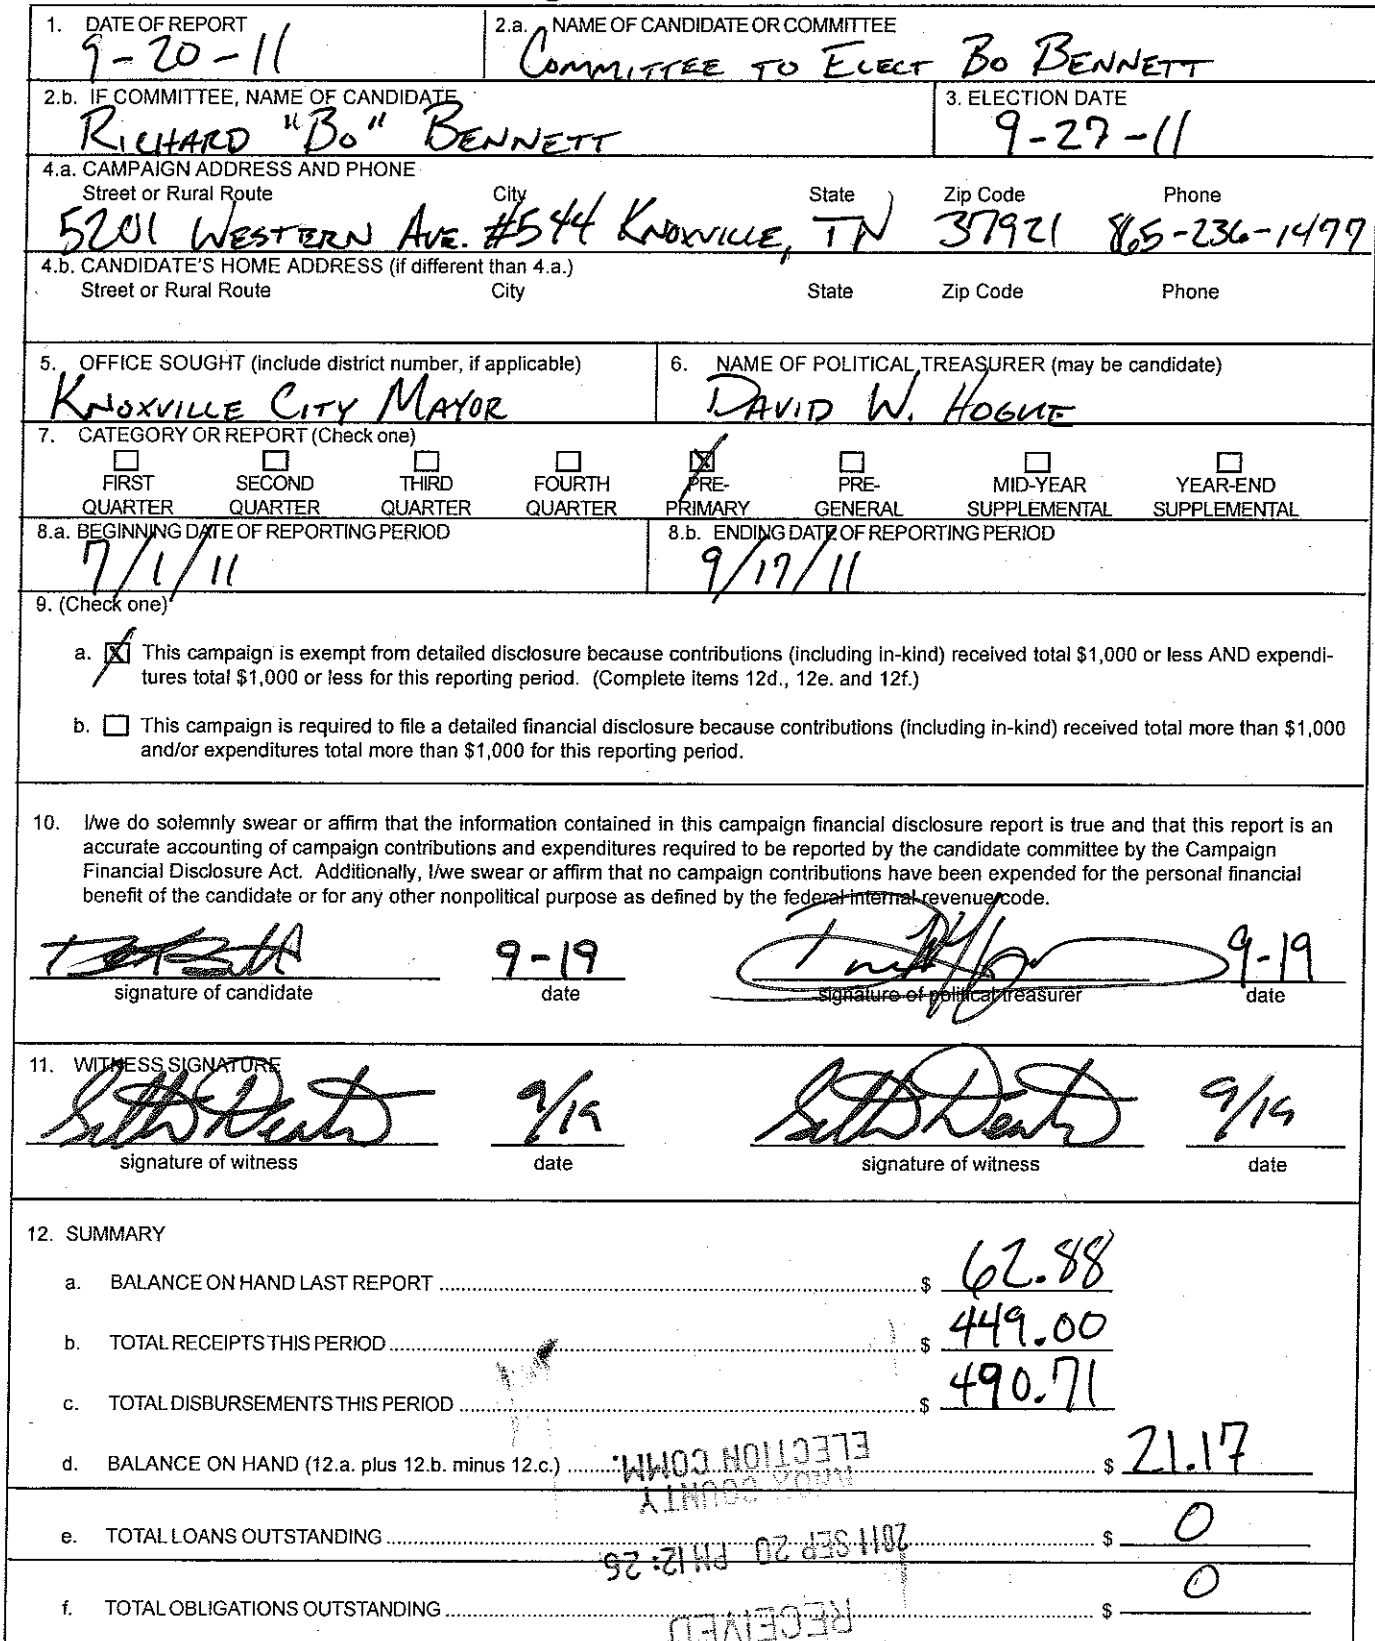 1. DATE OF REPORT
9-20-11
2.a. NAME OF CANDIDATE OR COMMITTEE
COMMITTEE TO ELECT BO BENNETT
2.b. IF COMMITTEE, NAME OF CANDIDATE
RICHARD "BO" BENNETT
3. ELECTION DATE
9-27-11
4.a. CAMPAIGN ADDRESS AND PHONE
Street or Rural Route City State Zip Code Phone
5201 WESTERN AVE. #544 KNOXVILLE, TN 37921 865-236-1477
4.b. CANDIDATE'S HOME ADDRESS (if different than 4.a.)
Street or Rural Route City State Zip Code Phone
5. OFFICE SOUGHT (include district number, if applicable)
KNOXVILLE CITY MAYOR
6. NAME OF POLITICAL TREASURER (may be candidate)
DAVID W. HOGUE
7. CATEGORY OR REPORT (Check one)
FIRST SECOND THIRD FOURTH PRE- PRE- MID-YEAR YEAR-END
QUARTER QUARTER QUARTER QUARTER PRIMARY GENERAL SUPPLEMENTAL SUPPLEMENTAL
8.a. BEGINNING DATE OF REPORTING PERIOD
7/1/11
8.b. ENDING DATE OF REPORTING PERIOD
9/17/11
9. (Check one)
a. X This campaign is exempt from detailed disclosure because contributions (including in-kind) received total $1,000 or less AND expendi-
tures total $1,000 or less for this reporting period. (Complete items 12d., 12e. and 12f.)
b. This campaign is required to file a detailed financial disclosure because contributions (including in-kind) received total more than $1,000
and/or expenditures total more than $1,000 for this reporting period.
10. I/we do solemnly swear or affirm that the information contained in this campaign financial disclosure report is true and that this report is an
accurate accounting of campaign contributions and expenditures required to be reported by the candidate committee by the Campaign
Financial Disclosure Act. Additionally, I/we swear or affirm that no campaign contributions have been expended for the personal financial
benefit of the candidate or for any other nonpolitical purpose as defined by the federal internal revenue code.
9-19 9-19
signature of candidate date signature of political treasurer date
11. WITNESS SIGNATURE
9/19 9/19
signature of witness date signature of witness date
12. SUMMARY
a. BALANCE ON HAND LAST REPORT $ 62.88
b. TOTAL RECEIPTS THIS PERIOD $ 449.00
c. TOTAL DISBURSEMENTS THIS PERIOD $ 490.71
d. BALANCE ON HAND (12.a. plus 12.b. minus 12.c.) $ 21.17
e. TOTAL LOANS OUTSTANDING $ 0
f. TOTAL OBLIGATIONS OUTSTANDING $ 0
RECEIVED
2011 SEP 20 PM 12:26
KNOX COUNTY
ELECTION COMM.